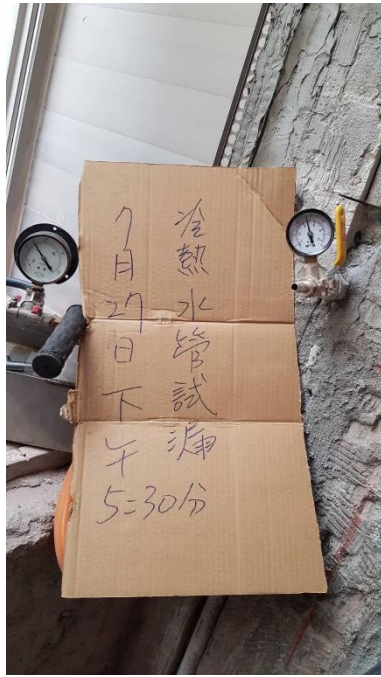 冷熱水管試漏
7月27日下午5:30分